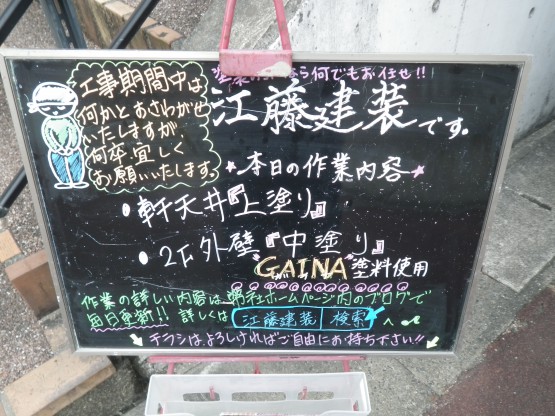 塗装のことなら何でもお任せ!!
工事期間中は
何かとおさわがせ
いたしますが
何卒、宜しく
お願いいたします。
江藤建装です。
本日の作業内容
• 軒天井『上塗り』
• 2F外壁『中塗り』
GAINA塗料使用
作業の詳しい内容は、弊社ホームページ内のブログで
毎日更新!! 詳しくは 江藤建装 検索 へ♪
チラシは、よろしければご自由にお持ち下さい!!